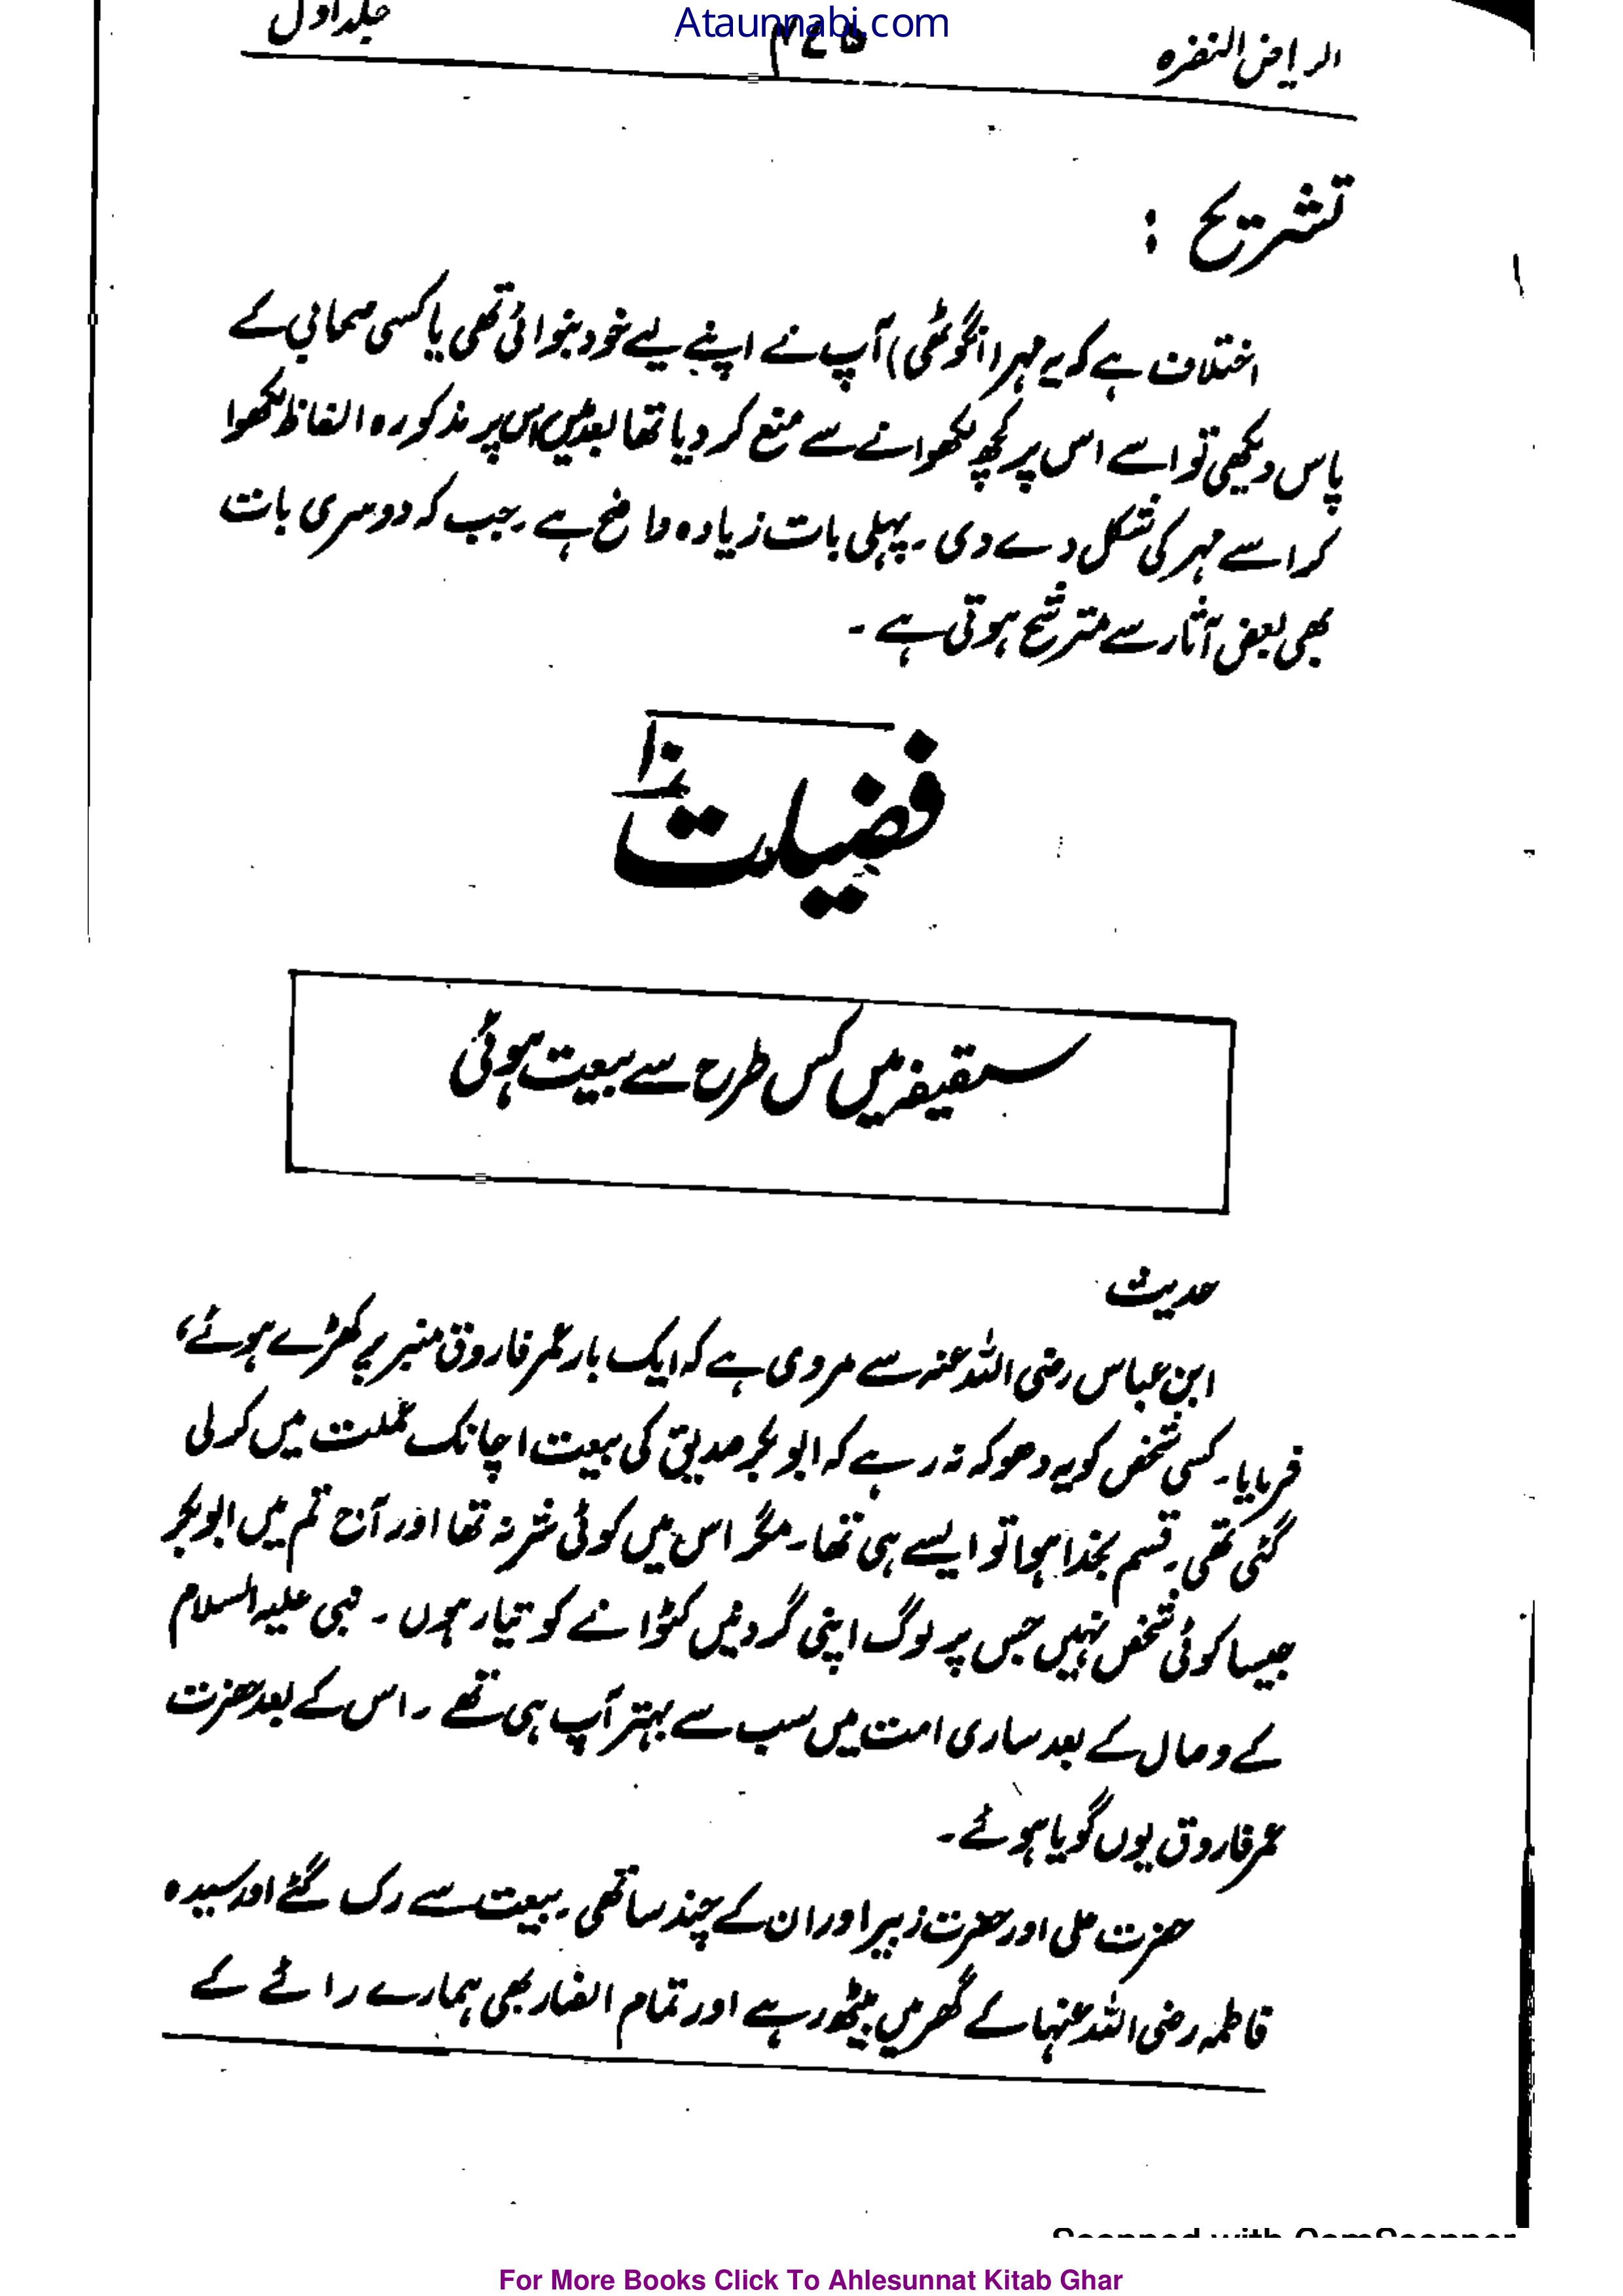 Ataunnabi.com
الریاض النضرہ ۴۷۵ جلد اول
تشریح :
اختلاف ہے کہ یہ مہر (انگوٹھی) آپ نے اپنے لیے خود بنوائی تھی یا کسی صحابی کے
پاس دیکھی تو اسے اس پر کچھ لکھوانے سے منع کر دیا تھا بعد میں اس پر مذکورہ الفاظ لکھوا
کر اسے مہر کی شکل دے دی ۔ پہلی بات زیادہ واضح ہے ۔ جب کہ دوسری بات
بھی بعض آثار سے مترشح ہوتی ہے ۔
فضیلت
سقیفہ میں کس طرح سے بیعت ہوئی
حدیث
ابن عباس رضی اللہ عنہ سے مروی ہے کہ ایک بار عمر فاروق منبر پر کھڑے ہوئے،
فرمایا ۔ کسی شخص کو یہ دھوکہ نہ رہے کہ ابو بکر صدیق کی بیعت اچانک عجلت میں کر لی
گئی تھی ۔ قسم بخدا ہوا تو ایسے ہی تھا ۔ مگر اس میں کوئی شر نہ تھا اور آج تم میں ابو بکر
جیسا کوئی شخص نہیں جس پر لوگ اپنی گردنیں کٹوانے کو تیار ہوں ۔ نبی علیہ السلام
کے وصال کے بعد ساری امت میں سب سے بہتر آپ ہی تھے ۔ اس کے بعد حضرت
عمر فاروق یوں گویا ہوئے ۔
حضرت علی اور حضرت زبیر اور ان کے چند ساتھی ۔ بیعت سے رک گئے اور سیدہ
فاطمہ رضی اللہ عنہا کے گھر میں بیٹھ رہے اور تمام انصار بھی ہمارے رائے کے
Scanned with CamScanner
For More Books Click To Ahlesunnat Kitab Ghar